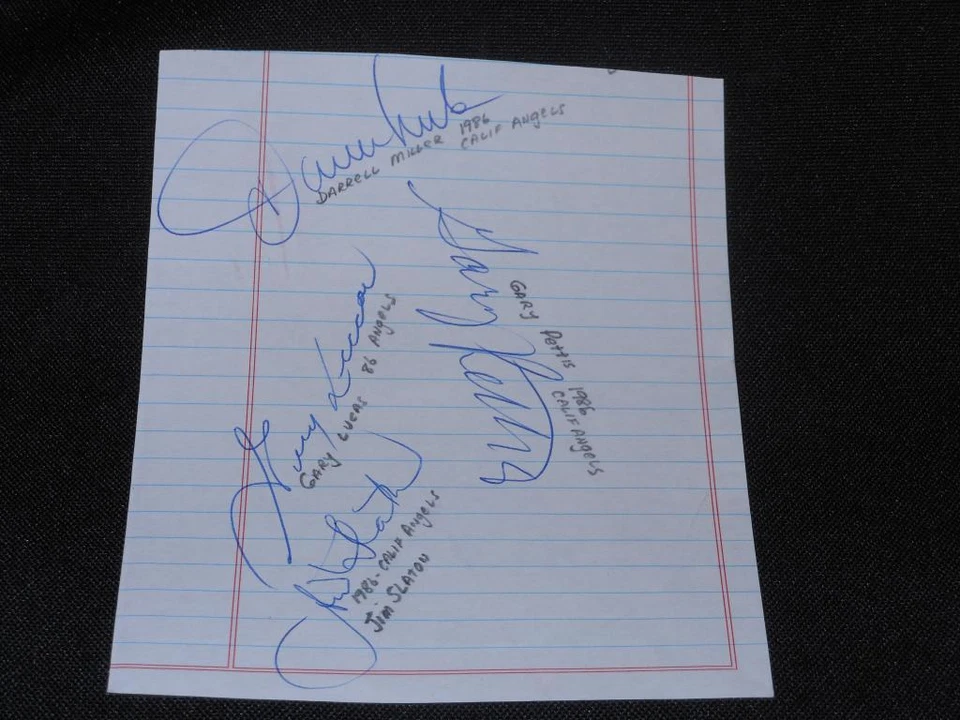 Darrell Miller
DARRELL MILLER 1986
CALIF ANGELS
Gary Pettis
GARY PETTIS 1986
CALIF ANGELS
Gary Lucas
GARY LUCAS 86 ANGELS
Jim Slaton
1986-CALIF ANGELS
Jim SLATON